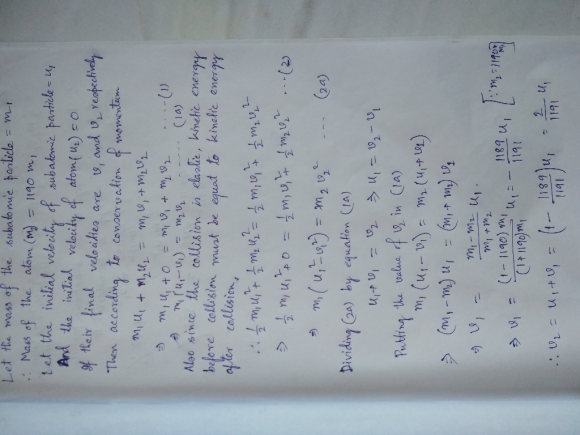 Let the mass of the subatomic particle = m₁
∴ Mass of the atom (m₂) = 1190 m₁
Let the initial velocity of subatomic particle = u₁
And the initial velocity of atom (u₂) = 0
If their final velocities are v₁ and v₂ respectively
Then according to conservation of momentum
m₁u₁ + m₂u₂ = m₁v₁ + m₂v₂
⇒ m₁u₁ + 0 = m₁v₁ + m₂v₂ ..... (1)
⇒ m₁(u₁-v₁) = m₂v₂ ..... (1A)
Also since the collision is elastic, kinetic energy
before collision must be equal to kinetic energy
after collision,
∴ ½ m₁u₁² + ½ m₂u₂² = ½ m₁v₁² + ½ m₂v₂²
⇒ ½ m₁u₁² + 0 = ½ m₁v₁² + ½ m₂v₂² ...(2)
⇒ m₁(u₁²-v₁²) = m₂v₂² .... (2A)
Dividing (2A) by equation (1A)
u₁+v₁ = v₂ ⇒ u₁ = v₂-v₁
Putting the value of v₂ in (1A)
m₁(u₁-v₁) = m₂(u₁+v₁)
⇒ (m₁-m₂)u₁ = (m₁+m₂)v₁
⇒ v₁ = (m₁-m₂)/(m₁+m₂) u₁.
⇒ v₁ = (1-1190)m₁/(1+1190)m₁ u₁ = -1189/1191 u₁ [∵ m₂=1190m₁]
∴ v₂ = u₁+v₁ = (1 - 1189/1191)u₁ = 2/1191 u₁